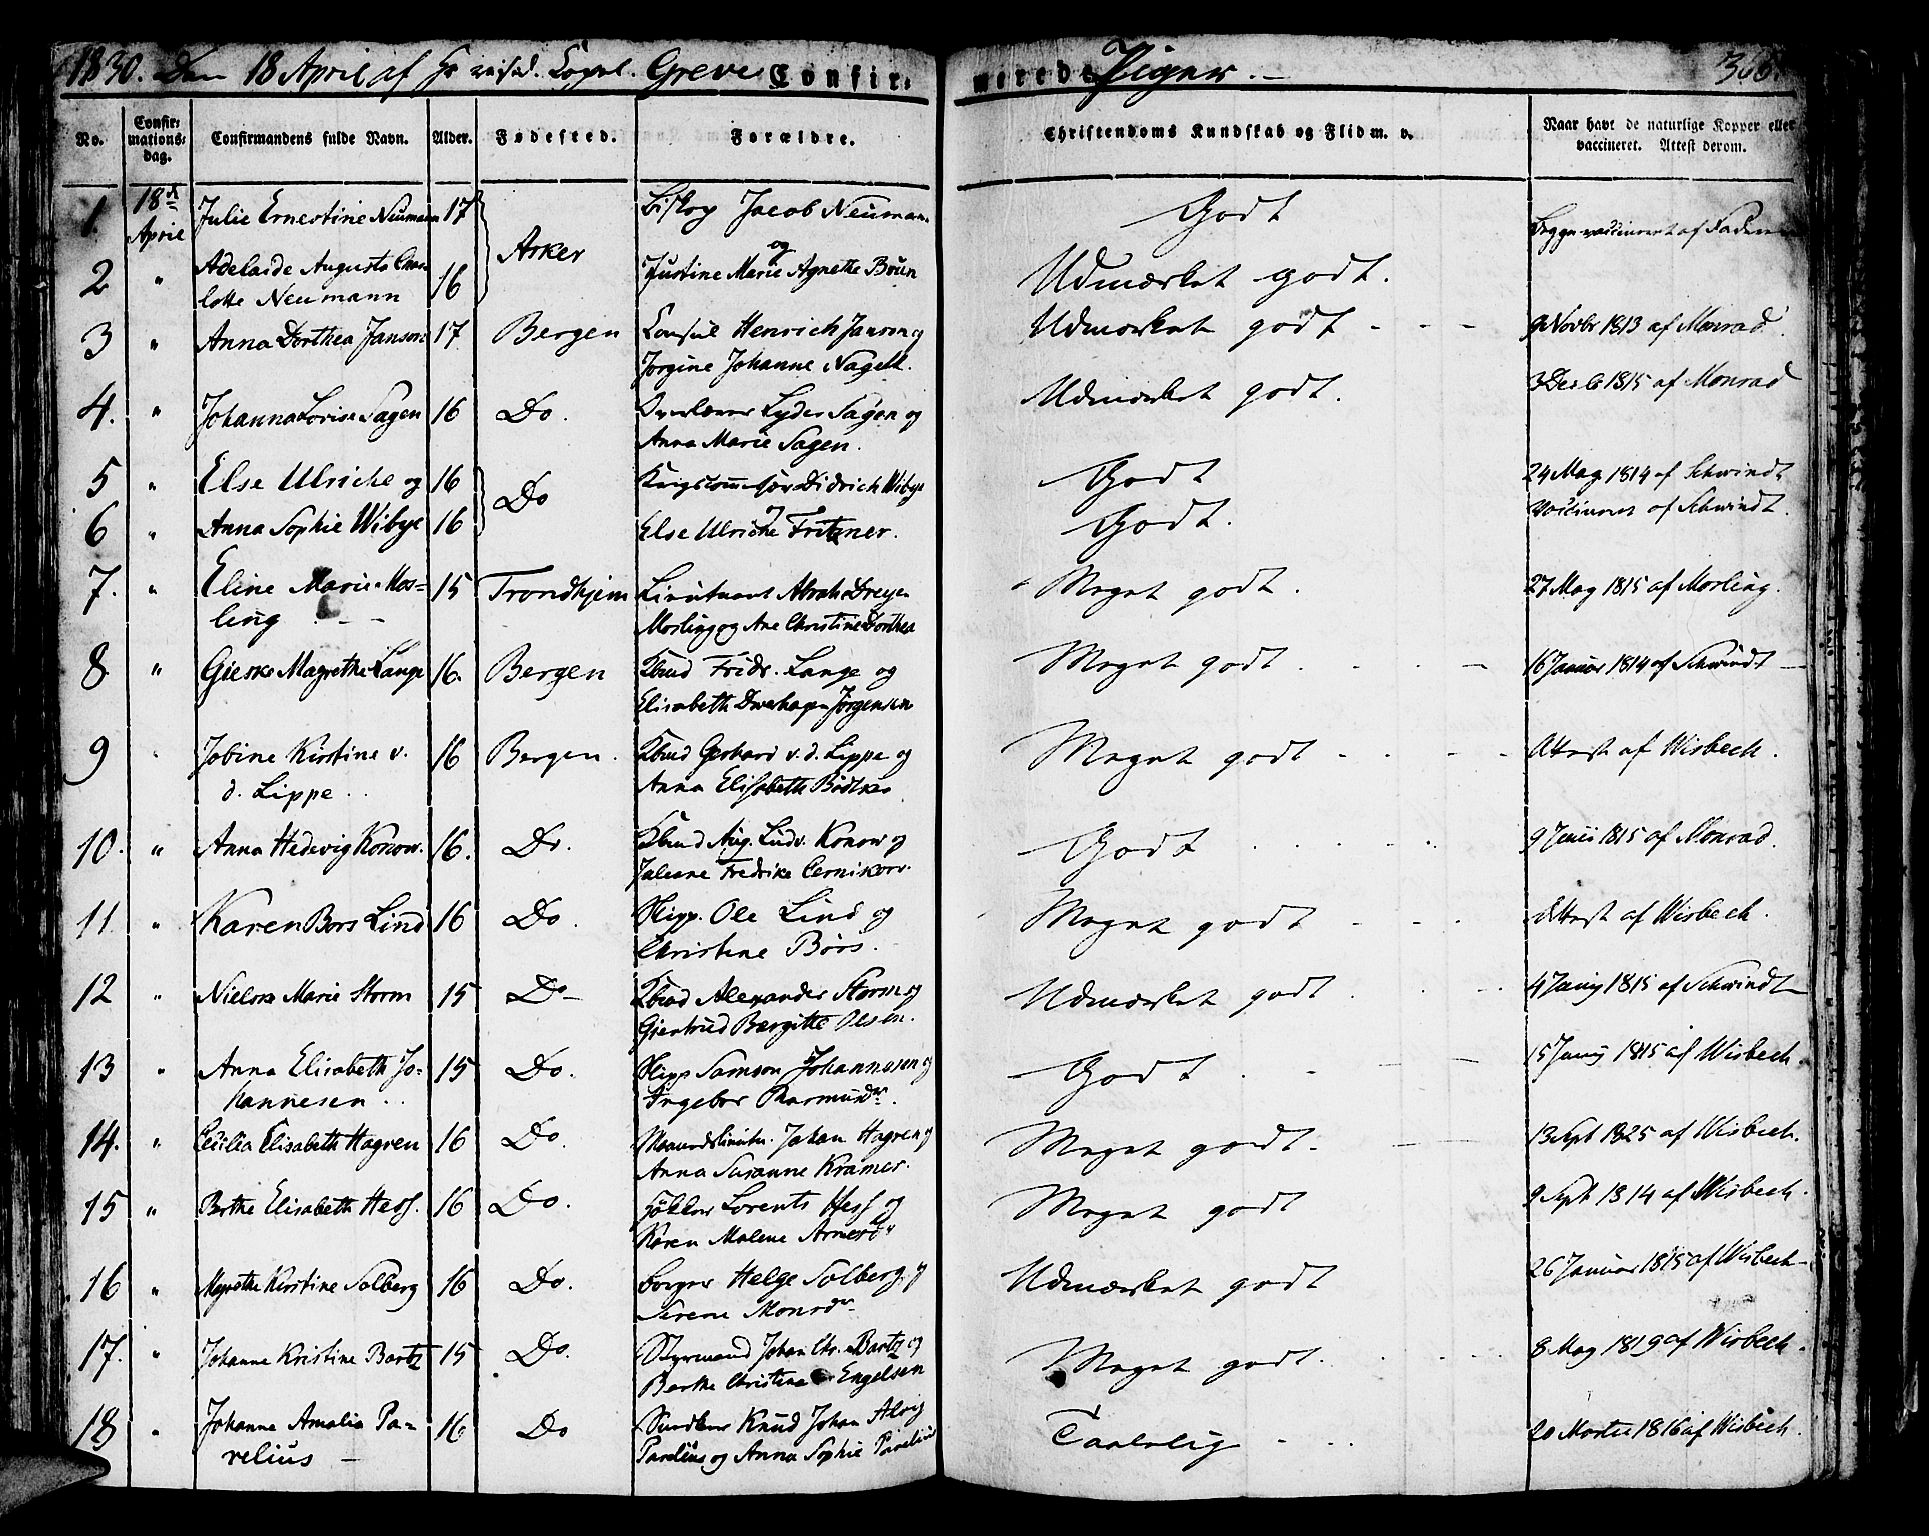 1830. Den 18 April af Hr resid. Capel. Greve Confir= merede Piger.
No. Confirmationsdag. Confirmandens fulde Navn. Alder. Fødested. Forældre. Christendoms Kundskab og Flid m. v. Naar havt de naturlige Kopper eller vaccineret. Attest derom.
1. 18de April Julie Ernestine Neumann 17 Asker Biskop Jacob Neumann Godt Begge vaccineret af Faderen
2 " Adelaide Augusta Char
lotte Neumann 16 og Justine Marie Agnethe Bøun Udmærket godt.
3 " Anna Dorthea Janson 17 Bergen Consul Henrich Janson og
Jørgine Johanne Nagell. Udmærket godt - - - 9 Novbr 1813 af Monrad.
4. " Johanna Lovise Sagen 16 Do. Overlærer Lyder Sagen og
Anna Marie Sagen. Udmærket godt. 3 Decb 1815 af Monrad
5 " Else Ulriche og 16 Do Didrich Wibye Godt 24 May 1814 af Schwindt
6 " Anna Sophie Wibye 16 og Else Ulriche Fritzner. Godt. Vaccineret af Schwindt.
7. " Eline Marie Mos=
ling 15 Trondhjem Lieutnant Abrah. Dreyer
Mosling og Ane Christine Dorthea Meget godt. 27 May 1815 af Mosling.
8. " Gieske Magrethe Lange 16. Bergen Kbmd Fridr. Lange og
Elisabeth Dverhagen Jørgensen Meget godt. 16 Januar 1814 af Schwindt
9 " Jobine Kirstine v.
d. Lippe 16 Bergen. Kbmd Gerhard v. d. Lippe og
Anna Elisabeth Bødtker Meget godt - Attest af Wisbech.
10. " Anna Hedevig Konow. 16. Do. Kbmd Aug. Ludv. Konow og
Juliane Fredrike Cernikow. Godt 9 Junii 1815 af Monrad.
11 " Karen Børs Lind 16 Do. Skipp. Ole Lind og
Christine Børs. Meget godt - Attest af Wisbech.
12 " Nielse Marie Storm 15 Do - Kbmd Alexander Storm og
Giertrud Bergitte Olsen. Udmærket godt 4 Juny 1815 af Schwindt
13 " Anna Elisabeth Jo=
hannesen 15 Do. Skipp Samson Johannesen og
Ingebor Rasmusdr. Godt. 15 Juny 1815 af Wisbech.
14. " Cecilia Elisabeth Hagren 16 Do. Johan Hagren og
Anna Susanne Kramer. Meget godt. 13 Sept 1825 af Wisbech.
15 " Berthe Elisabeth Hess. 16 Do. Lorents Hess og
Karen Malene Meget godt 9 Sept 1814 af Wisbech.
16 " Magrethe Kirstine Solberg 16 Do. Borger Helge Solberg og
Serene Monsdr. Udmærket godt 26 Januar 1815 af Wisbech
17. " Johanne Kristine Bartz 15 Do. Styrmand Johan Chr. Bartz og
Berthe Christine Engelsen Meget godt. 8 May 1819 af Wisbech.
18 " Johanne Amalia Pa=
relius 16 Do Knud Johan
Parelius og Anna Sophie Parelius Taalelig 20 Martii 1816 af Wisbech.